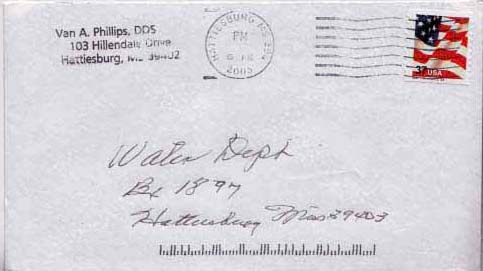 Van A. Phillips, DDS
103 Hillendale Drive
Hattiesburg, MS 39402
HATTIESBURG MS 394
PM
2005
37 USA
Water Dept
Bx 1897
Hattiesburg Miss 39403